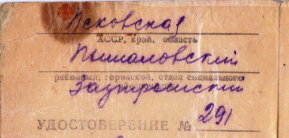 Псковская
АССР, край, область
Пыталовский
районный, городской, отдел социального
УДОСТОВЕРЕНИЕ № 291